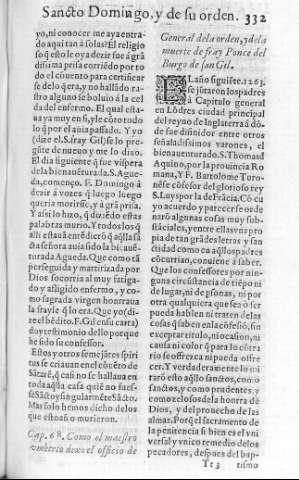 Sancto Domingo, y de su orden. 332
yo, ni conocer me aya entra-
do aqui tan à solas? El religio
so q̃ esto le oya dezir fue a grã
dissima prisa corriẽdo por to
do el cõuento para certificar
se delo q̃ era, y no hallãdo ra-
stro alguno se boluio à la cel
da del enfermo. El qual esta-
ua ya muy en si, y le côto todo
lo q̃ por el auia passado. Y yo
(dize el S. fray Gil) se lo pre-
gũte de nueuo y me lo dixo.
El dia siguiente q̃ fue vispera
dela bienauẽturada. S. Ague
da, començo. F. Domingo à
dezir à vozes q̃ luego luego
queria morirse, y à grã prisa.
Y assi lo hizo, q̃ diziẽdo estas
palabras murio. Y todos los q̃
alli estauã entẽdierõ q̃ aqlla sã
ta señora auia sido la bienauẽ
turada Agueda. Que como tã
perseguida y martirizada por
Dios socorria al muy fatiga-
do y afligido enfermo, y co-
mo sagrada virgen honraua
la frayle q̃ lo era. Que yo (di-
ze el bẽdito. F. Gil en su carta)
doy testimonio dello porque
he sido su confessor.
Estos y otros semejãtes spiri
tus se criauan en el cõuẽto de
Sãtarẽ, q̃ casi no se hallaua en
toda aqlla casa quiẽ no fues-
se Sãcto y singularmẽte Sãcto.
Mas solo hemos dicho delos
que estonces murieron.
Cap. 68. Como el maestro
Humberto dexo el officio de
General dela orden, y dela
muerte de fray Ponce del
Burgo de san Gil.
EL año siguiẽte. 1263.
se jũtaron los padres
à Capitulo general
en Lõdres ciudad principal
del reyno de Inglaterra à dõ-
de fue difinidor entre otros
señaladissimos varones, el
bienauenturado. S. Thomas d̃
Aquino, por la prouincia Ro
mana, Y F. Bartolome Turo-
nẽse cõfessor del glorioso rey
S. Luys por la de Frãcia. Cõ cu
yo acuerdo y parecer se orde
narõ algunas cosas muy sub-
stãciales, y entre ellas vna pro
pia de tan grãdes letras y san
ctidad como en aq̃llos padres
cõcurrian, conuiene à saber.
Que los confessores por nin-
guna circunstancia de tiẽpo ni
de lugar, ni de psonas, ni por
otra qualquiera que sea ò ser
pueda hablen ni traten delas
cosas q̃ saben enla cõfesiõ, sin
exceptar titulo, ni ocasion, ni
causa ni color q̃ para lo cõtra
rio se offrezca ni pueda offre
cer. Y verdaderamente lo mi
rarõ esto aq̃llos sanctos, como
sanctos, y como prudentes, y
como zelosos dela honrra de
Dios, y del prouecho de las
almas. Porq̃ el sacramento de
la penitencia si bien es el vni
uersal y vnico remedio delos
pecadores, despues del bap-
Tt 3 tismo